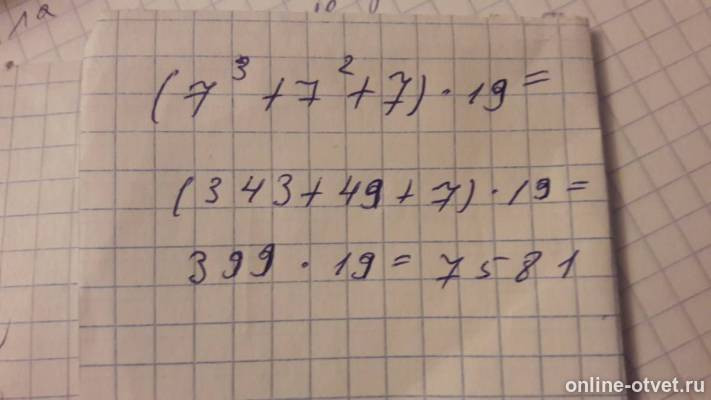 1a
(7³ + 7² + 7) · 19 =
(343 + 49 + 7) · 19 =
399 · 19 = 7581
online-otvet.ru